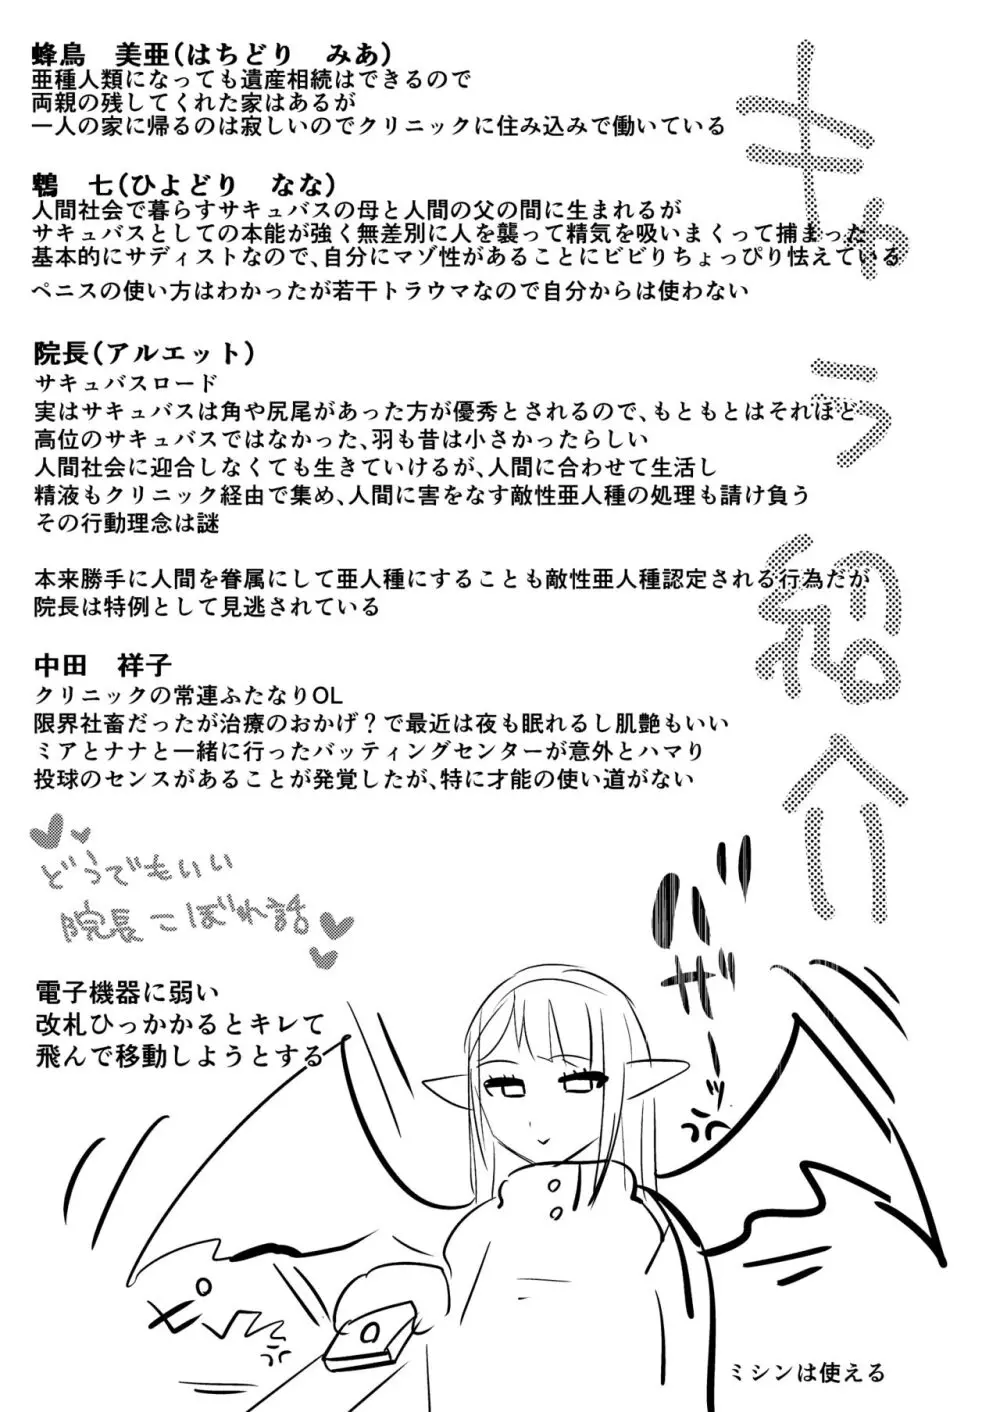 キャラ紹介
蜂鳥　美亜(はちどり　みあ)
亜種人類になっても遺産相続はできるので
両親の残してくれた家はあるが
一人の家に帰るのは寂しいのでクリニックに住み込みで働いている
鵯　七(ひよどり　なな)
人間社会で暮らすサキュバスの母と人間の父の間に生まれるが
サキュバスとしての本能が強く無差別に人を襲って精気を吸いまくって捕まった
基本的にサディストなので、自分にマゾ性があることにビビりちょっぴり怯えている
ペニスの使い方はわかったが若干トラウマなので自分からは使わない
院長(アルエット)
サキュバスロード
実はサキュバスは角や尻尾があった方が優秀とされるので、もともとはそれほど
高位のサキュバスではなかった、羽も昔は小さかったらしい
人間社会に迎合しなくても生きていけるが、人間に合わせて生活し
精液もクリニック経由で集め、人間に害をなす敵性亜人種の処理も請け負う
その行動理念は謎
本来勝手に人間を眷属にして亜人種にすることも敵性亜人種認定される行為だが
院長は特例として見逃されている
中田　祥子
クリニックの常連ふたなりOL
限界社畜だったが治療のおかげ？で最近は夜も眠れるし肌艶もいい
ミアとナナと一緒に行ったバッティングセンターが意外とハマり
投球のセンスがあることが発覚したが、特に才能の使い道がない
どうでもいい
院長こぼれ話
電子機器に弱い
改札ひっかかるとキレて
飛んで移動しようとする
バサ゛ーッ
ミシンは使える